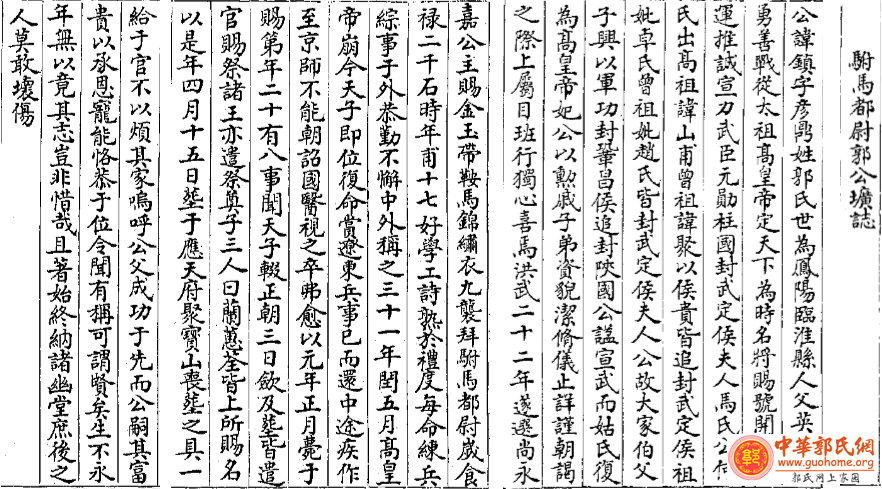 駙馬都尉郭公壙誌
公諱鎮字彥鼎姓郭氏世為鳳陽臨淮縣人父英
勇善戰從太祖高皇帝定天下為時名將賜號開
運推誠宣力武臣元勛柱國封武定侯夫人馬氏公
氏出高祖諱山甫曾祖諱聚以侯貴皆追封武定侯祖
妣卓氏曾祖妣趙氏皆封武定侯夫人公故大家伯父
子興以軍功封鞏昌侯追封陝國公謚宣武而姑氏復
為高皇帝妃公以勳戚子弟資貌潔脩儀止詳謹朝謁
之際上屬目班行獨心喜焉洪武二十二年遂選尚永
嘉公主賜金玉帶鞍馬錦繡衣九襲拜駙馬都尉歲食
祿二千石時年甫十七好學工詩熟於禮度每命練兵
綜事于外恭勤不懈中外稱之三十一年閏五月高皇
帝崩今天子即位復命賞遼東兵事已而還中途疾作
至京師不能朝詔國醫視之卒弗愈以元年正月薨于
賜第年二十有八事聞天子輟正朝三日歛及塟皆遣
官賜祭諸王亦遣祭奠子三人曰蘭蕙荃皆上所賜名
以是年四月十五日塟于應天府聚寶山喪塟之具一
給于官不以煩其家嗚呼公父成功于先而公嗣其富
貴以承恩寵能恪恭于位令聞有稱可謂賢矣生不永
年無以竟其志豈非惜哉且著始終納諸幽堂庶後之
人莫敢壞傷
郭
中華郭氏網
www.guohome.org
郭氏网上家园